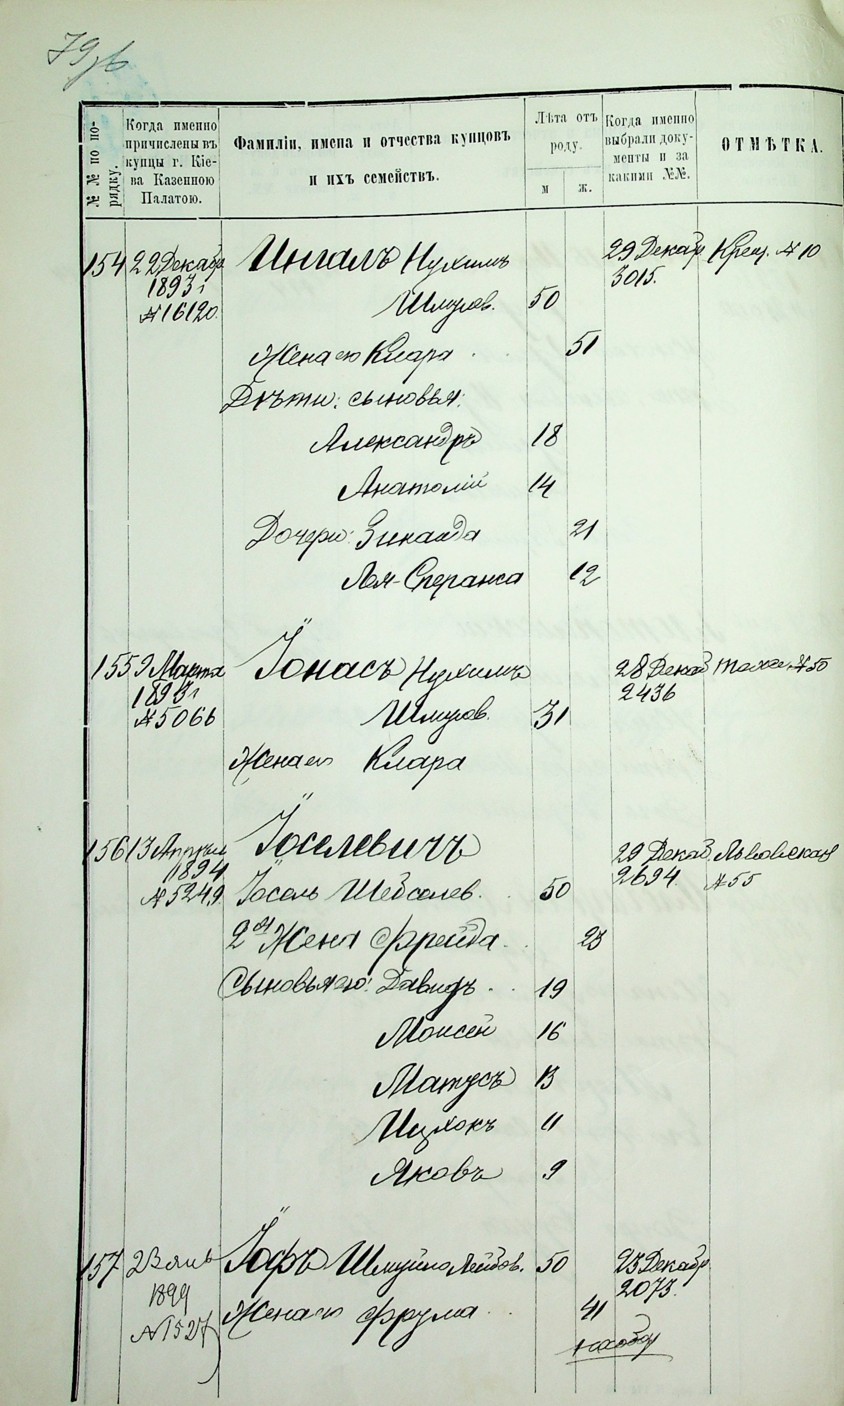 79
№№ по порядку.
Когда именно причислены въ купцы г. Кіева Казенною Палатою.
Фамиліи, имена и отчества купцовъ
и ихъ семействъ.
Лѣта отъ роду.
м
ж.
Когда именно выбрали документы и за какими №№.
ОТМѢТКА.
154 22 Декабр Ингалъ Нухимъ 29 Декабр Крещ. №10
1893 г Шмулев. 50 3015.
№16120.
Жена его Клара 51
Дѣти: сыновья:
Александръ 18
Анатолій 14
Дочери: Зинаида 21
Лея-Сперанса 12
155 9 Марта Іонасъ Нухимъ 28 Декаб №50
1893 г 2436
№5066 Шмулев. 31
Жена его Клара
156 13 Апрѣля Іоселевичъ 29 Декаб. Львовская
1894 2694. №55
№5249. Іосель Шейвелев. 50
2ая Жена Фрейда 23
Сыновья его: Давидъ 19
Моисей 16
Матусъ 13
Ицхокъ 11
Яковъ 9
157 23 янв Іофъ Шмуйло Лейбов. 50 23 Декабр
1899 2073.
№1527 Жена его Фрума 41